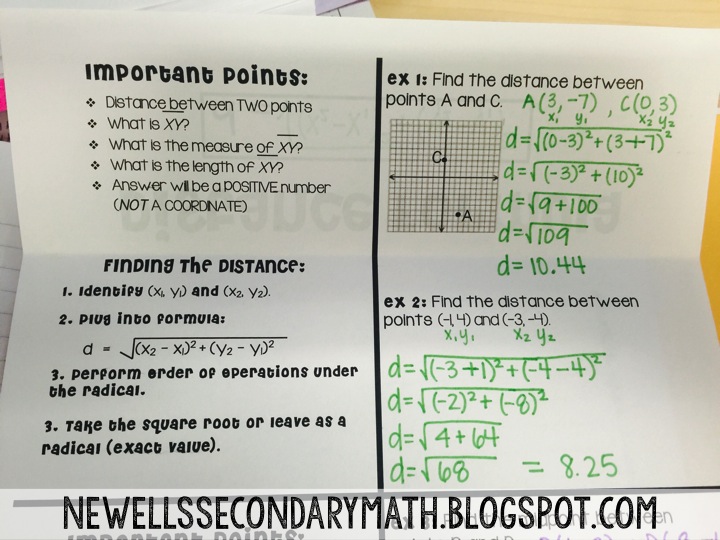 Important Points:
❖ Distance between TWO points
❖ What is XY?
❖ What is the measure of XY?
❖ What is the length of XY?
❖ Answer will be a POSITIVE number
(NOT A COORDINATE)
Finding the Distance:
1. Identify (x₁, y₁) and (x₂, y₂).
2. Plug into formula:
d = √(x₂ − x₁)² + (y₂ − y₁)²
3. Perform order of operations under
the radical.
3. Take the square root or leave as a
radical (exact value).
ex 1: Find the distance between
points A and C. A(3, -7), C(0, 3)
x₁ y₁ x₂ y₂
C
A
d=√(0-3)²+(3+7)²
d=√(-3)²+(10)²
d=√9+100
d=√109
d=10.44
ex 2: Find the distance between
points (-1, 4) and (-3, -4).
x₁ y₁ x₂ y₂
d=√(-3+1)²+(-4-4)²
d=√(-2)²+(-8)²
d=√4+64
d=√68 = 8.25
NEWELLSSECONDARYMATH.BLOGSPOT.COM
Important Points: